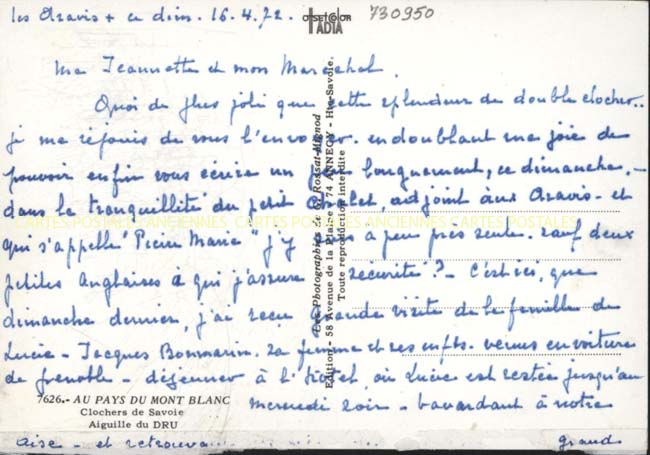 les Aravis + ce dim. 16.4.72.
OFFSET COLOR
IADIA
730950
Ma Jeannette et mon Marechal.
Quoi de plus joli que cette splendeur de double clocher..
je me réjouis de vous l'envoyer. en doublant ma joie de
pouvoir enfin vous écrire un longuement, ce dimanche,.-
dans la tranquillité du petit adjoint aux Aravis - et
qui s'appelle "Pierre Marie" j'y suis à peu près seule. sauf deux
petites Anglaises à qui j'assure sécurité ? - C'est ici, que
dimanche dernier, j'ai reçu grande visite de la famille de
Lucie - Jacques sa femme et ses enfts. venus en voiture
de Grenoble - déjeuner à l'hôtel, où Lucie est restée jusqu'au
mercredi soir - bavardant à notre
aise - et
grand
7626.- AU PAYS DU MONT BLANC
Clochers de Savoie
Aiguille du DRU
Les Photographies de G. Rossat-Mignod
Edition - 58 Avenue de la Plaine - 74 ANNECY - Hte-Savoie.
Toute reproduction interdite
CARTES POSTALES ANCIENNES CARTES POSTALES ANCIENNES CARTES POSTALES